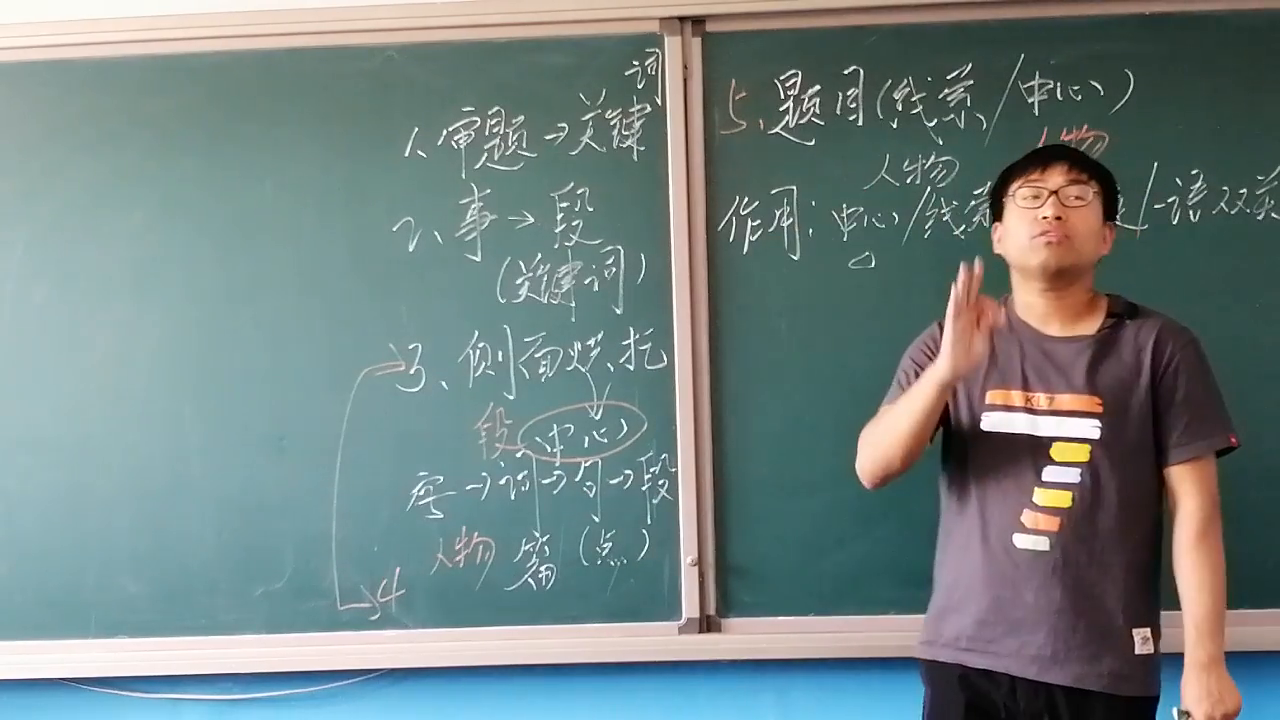 词
1、审题→关键
2、事→段
(关键词)
3、侧面烘托
段 中心
字→词→句→段
人物 篇 (点)
4
5、题目(线索/中心)
人物
人物
作用:中心/线索
/一语双关
KL7